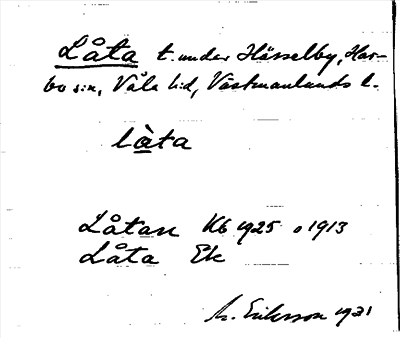 Låta t. under Hässelby, Har-
bo sn, Våla hd, Västmanlands l.
làta
Låtan Kb 1925 o 1913
Låta Ek
M. Eriksson 1931